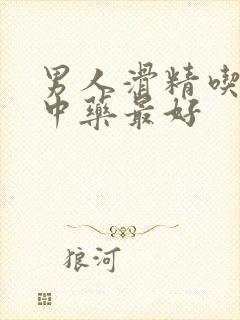 男人滑精喫
中藥最好
狼河